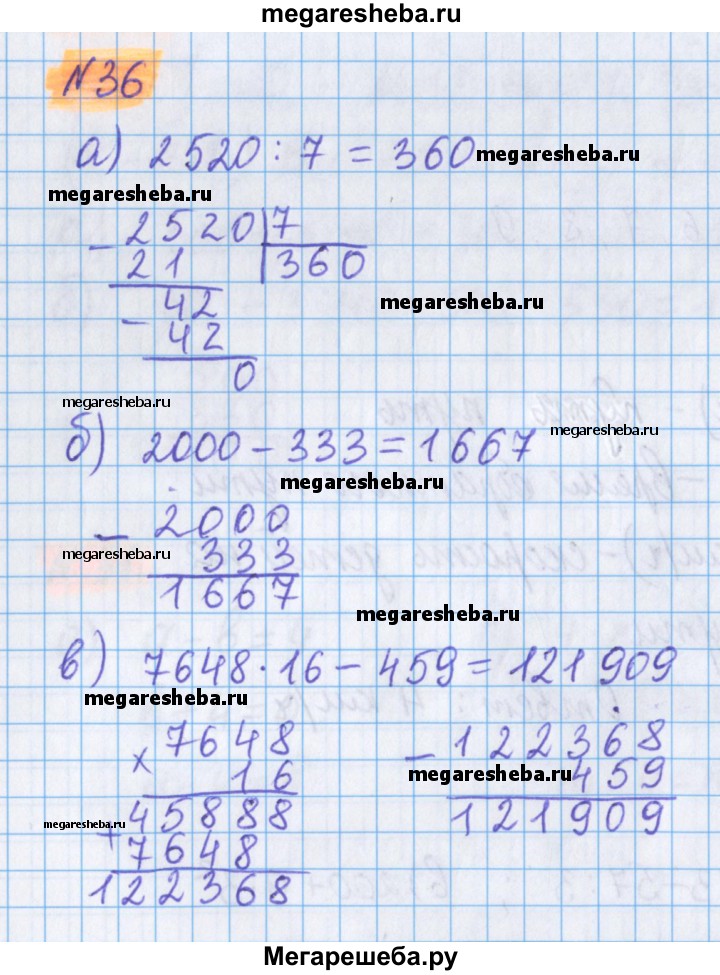 megaresheba.ru
№36
а) 2520 : 7 = 360 megaresheba.ru
megaresheba.ru
- 2520 | 7
21 | 360
megaresheba.ru
42
- 42
0
megaresheba.ru
б) 2000 - 333 = 1667 megaresheba.ru
megaresheba.ru
- 2000
megaresheba.ru 333
1667
megaresheba.ru
в) 7648 · 16 - 459 = 121 909
megaresheba.ru
× 7648
16
45888
megaresheba.ru
+ 7648
122368
- 122368
megaresheba.ru 459
121909
Мегарешеба.ру